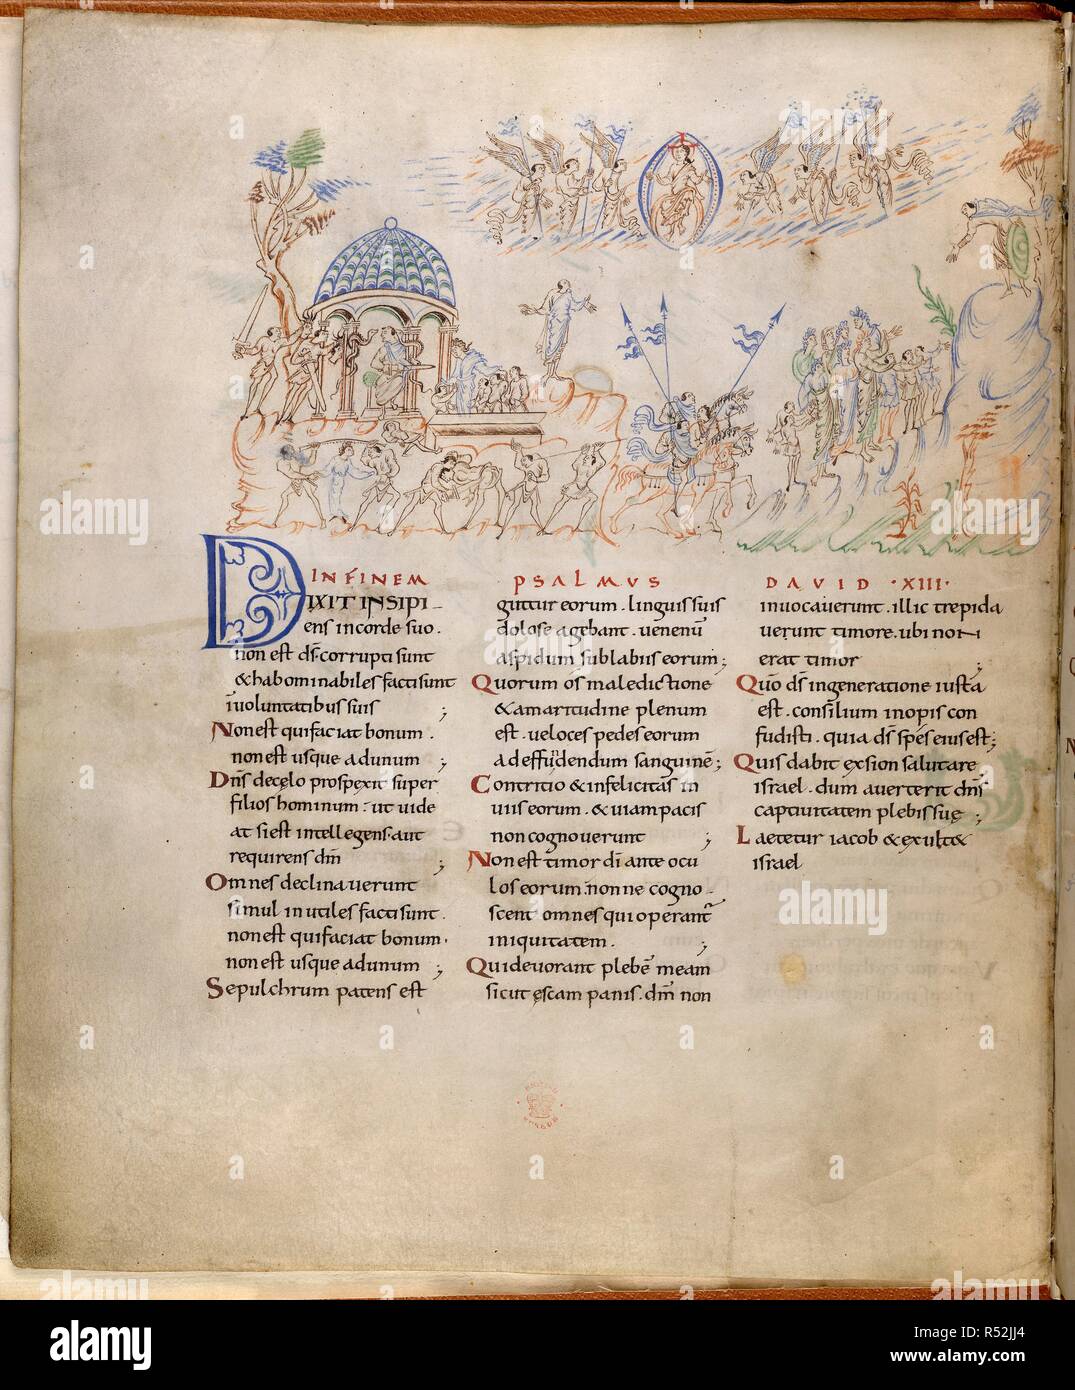 IN FINEM PSALMUS DAVID ·XIII·
DIXIT INSIPI
ens incorde suo.
non est d̅s̅. corrupti sunt
& habominabiles facti sunt
i̅ voluntatibus suis ;
Non est qui faciat bonum.
non est usque ad unum ;
Dn̅s decęlo prospexit super
filios hominum. ut vide
at si est intellegens. aut
requirens dm̅ ;
Omnes declinaverunt
simul inutiles facti sunt.
non est qui faciat bonum.
non est usque ad unum ;
Sepulchrum patens est
guttur eorum. linguis suis
dolose agebant. venenu̅
aspidum sub labiis eorum ;
Quorum os maledictione
& amaritudine plenum
est. veloces pedes eorum
ad effundendum sanguine̅ ;
Contritio & infelicitas in
viis eorum. & viam pacis
non cognoverunt ;
Non est timor di̅ ante ocu
los eorum. nonne cogno
scent omnes qui operant
iniquitatem. ;
Qui devorant plebe̅ meam
sicut escam panis. dm̅ non
invocaverunt. illic trepida
verunt timore. ubi non
erat timor ;
Quo̅ d̅s̅ in generatione iusta
est. consilium inopis con
fudisti. quia d̅s̅ spes eius est ;
Quis dabit exsion salutare
israel. dum averterit dn̅s
captivitatem plebis suę ;
Laetetur iacob & exult&
israel
alamy
Image ID: R52JJ4
www.alamy.com